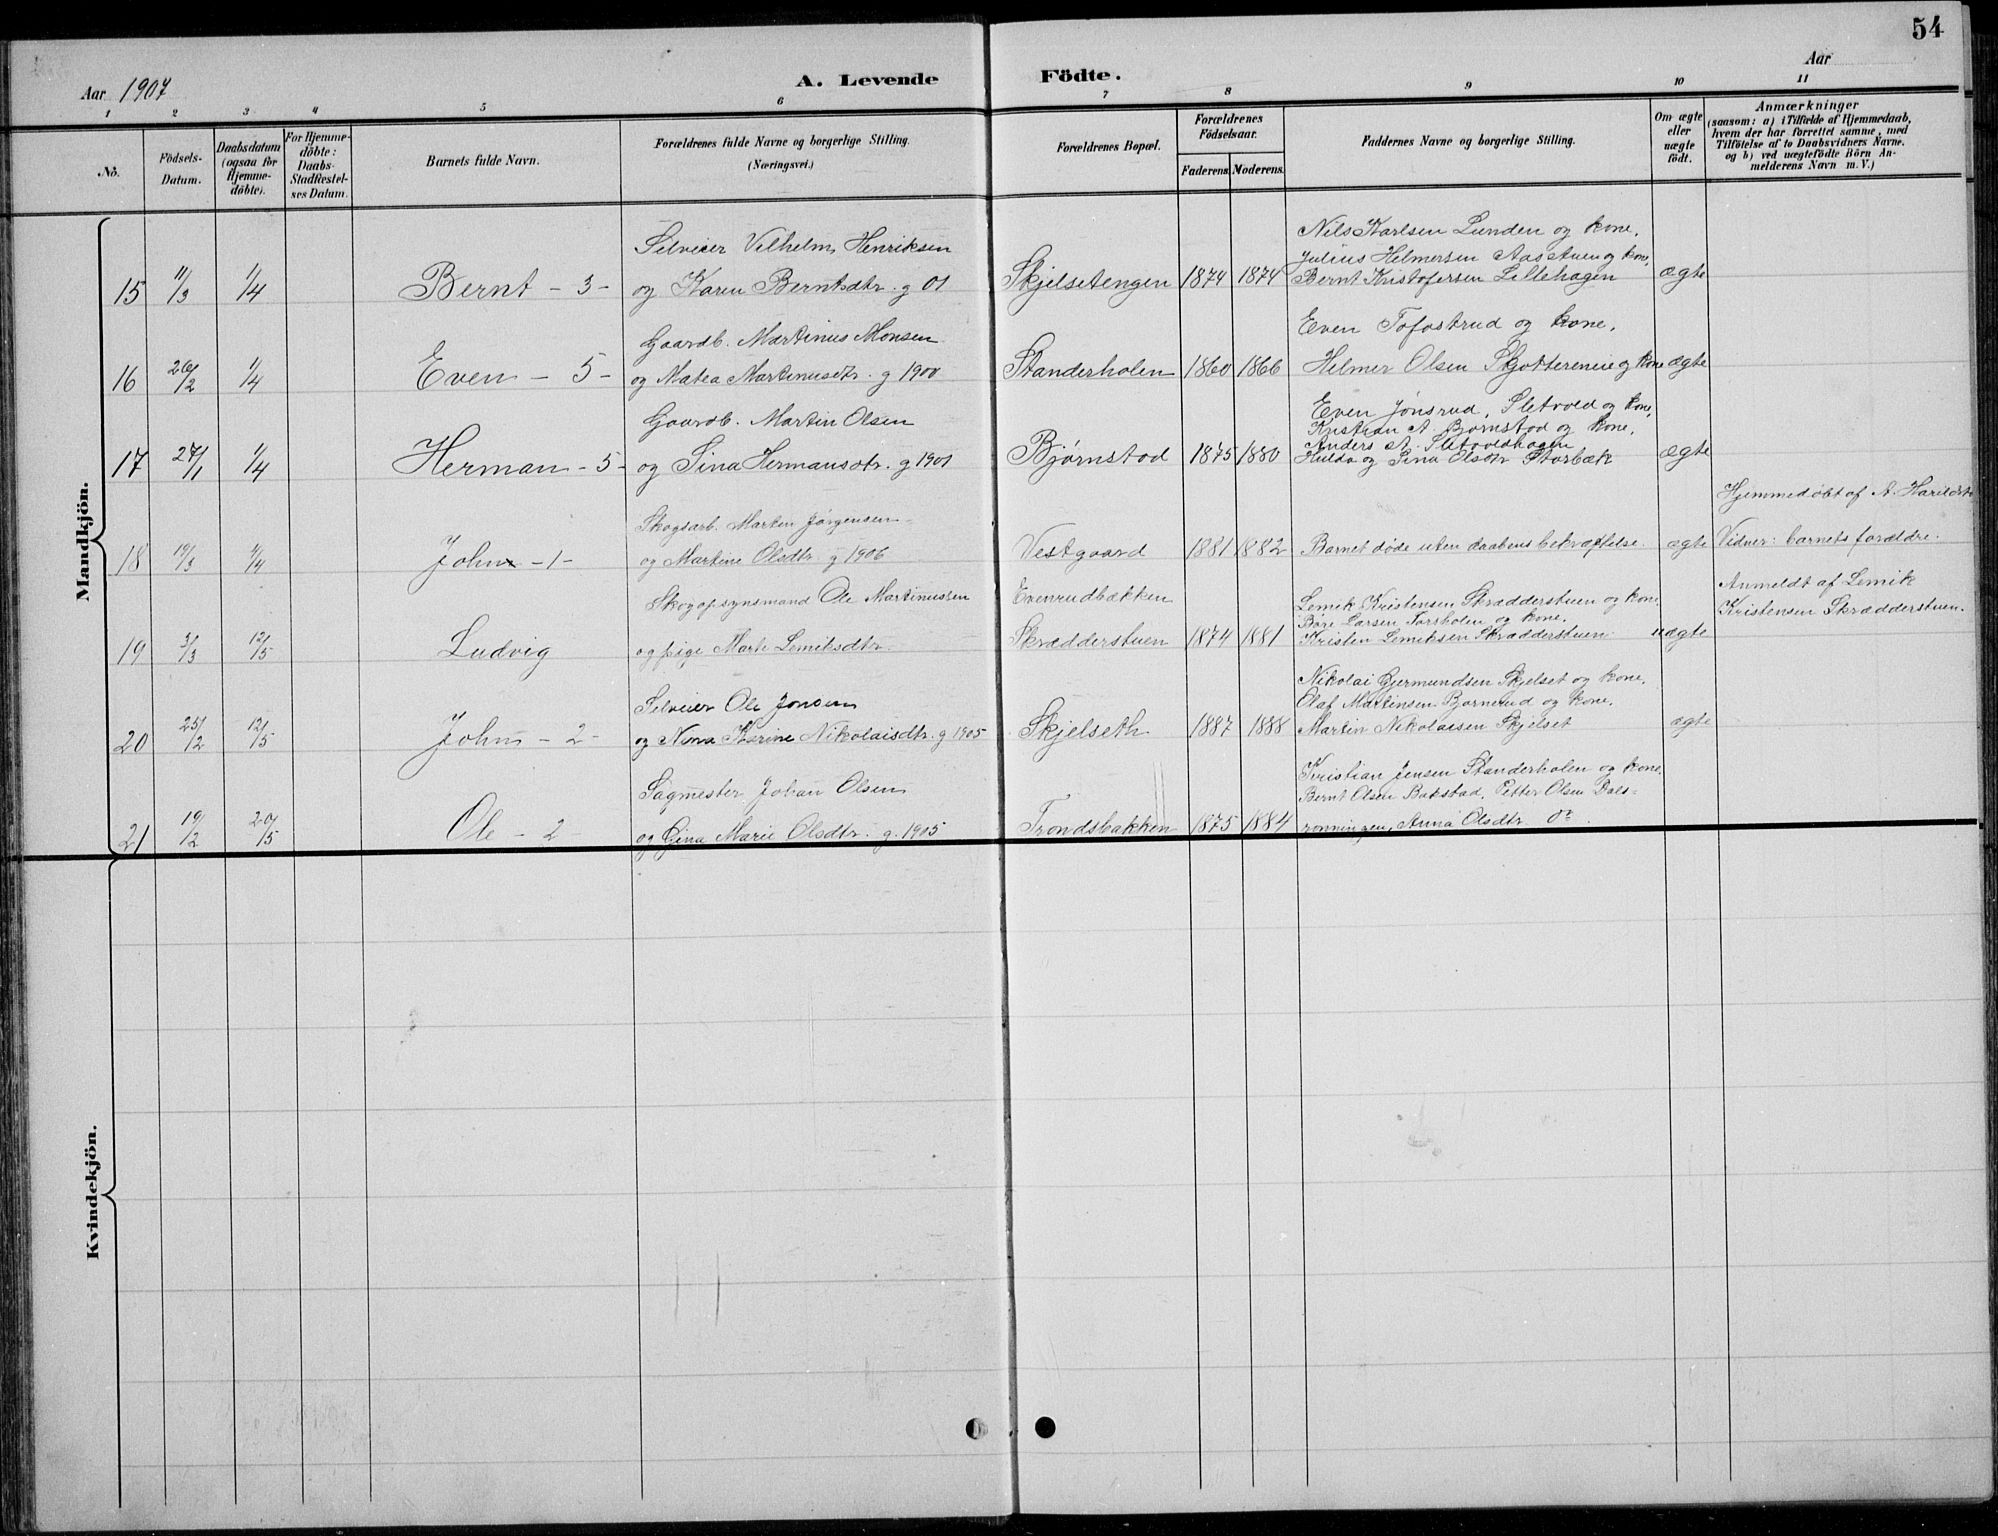 54
Aar 1907
A. Levende Födte.
Aar
1 2 3 4 5 6 7 8 9 10 11
No.
Födsels-Datum.
Daabsdatum (ogsaa for Hjemme-döbte).
For Hjemme-döbte: Daabs-Stadfæstel-ses Datum.
Barnets fulde Navn.
Forældrenes fulde Navne og borgerlige Stilling.
(Næringsvei.)
Forældrenes Bopæl.
Forældrenes Födselsaar.
Faderens. Moderens.
Faddernes Navne og borgerlige Stilling.
Om ægte eller uægte födt.
Anmærkninger
(saasom: a) i Tilfælde af Hjemmedaab,
hvem der har forrettet samme, med
Tilföielse af to Daabsvidners Navne.
og b) ved uægtefödte Börn An-
melderens Navn m. V.)
Mandkjön.
Selveier Vilhelm Henriksen
Nils Karlsen Lunden og kone,
Julius Helmersen Aasstuen og kone,
15 11/3 1/4 Bernt - 3 - og Karen Berntsdtr. g 01 Skjelsetengen 1874 1874 Bernt Kristofersen Lillehagen ægte
Gaardb. Martinus Monsen
Even Tofastrud og kone,
16 26/2 1/4 Even - 5 - og Matea Martinusdtr. g 1900 Standerholen 1860 1866 Helmer Olsen Skjottereneie og kone ægte
Gaardb. Martin Olsen
Even Jønsrud, Sletvold og kone,
Kristian A. Bjørnstad og kone,
Anders A. Sletvoldhagen
17 27/1 1/4 Herman - 5 - og Sina Hermansdtr. g 1901 Bjørnstad 1875 1880 Hulda og Sina Olsdtr Storbæk ægte
Skogsarb. Martin Jørgensen
Hjemmedøbt af A. Harildst
18 19/3 1/4 John - 1 - og Martine Olsdtr g 1906 Vestgaard 1881 1882 Barnet døde uten daabens bekræftelse. ægte Vidner: barnets forældre.
Skogopsynsmand Ole Martinussen
Evenrudbækken
Lemik Kristensen Skrædderstuen og kone,
Bare Larsen Torsholen og kone,
Anmeldt af Lemik
Kristensen Skrædderstuen.
19 3/3 12/5 Ludvig og pige Marte Lemiksdtr. Skrædderstuen 1874 1881 Kristen Lemiksen Skrædderstuen uægte
Selveier Ole Jonsen
Nikolai Gjermundsen Skjelset og kone,
Olaf Martinsen Bjørnerud og kone,
20 25/2 12/5 John - 2 - og Nina Karine Nikolaisdtr. g 1905 Skjelseth 1887 1888 Martin Nikolaisen Skjelset ægte
Sagmester Johan Olsen
Kristian Jensen Standerholen og kone,
Bernt Olsen Bakstad, Petter Olsen Dals-
21 19/2 20/5 Ole - 2 og Gina Marie Olsdtr. g. 1905 Trondsbakken 1875 1884 rønningen, Anna Olsdtr do.
Kvindekjön.